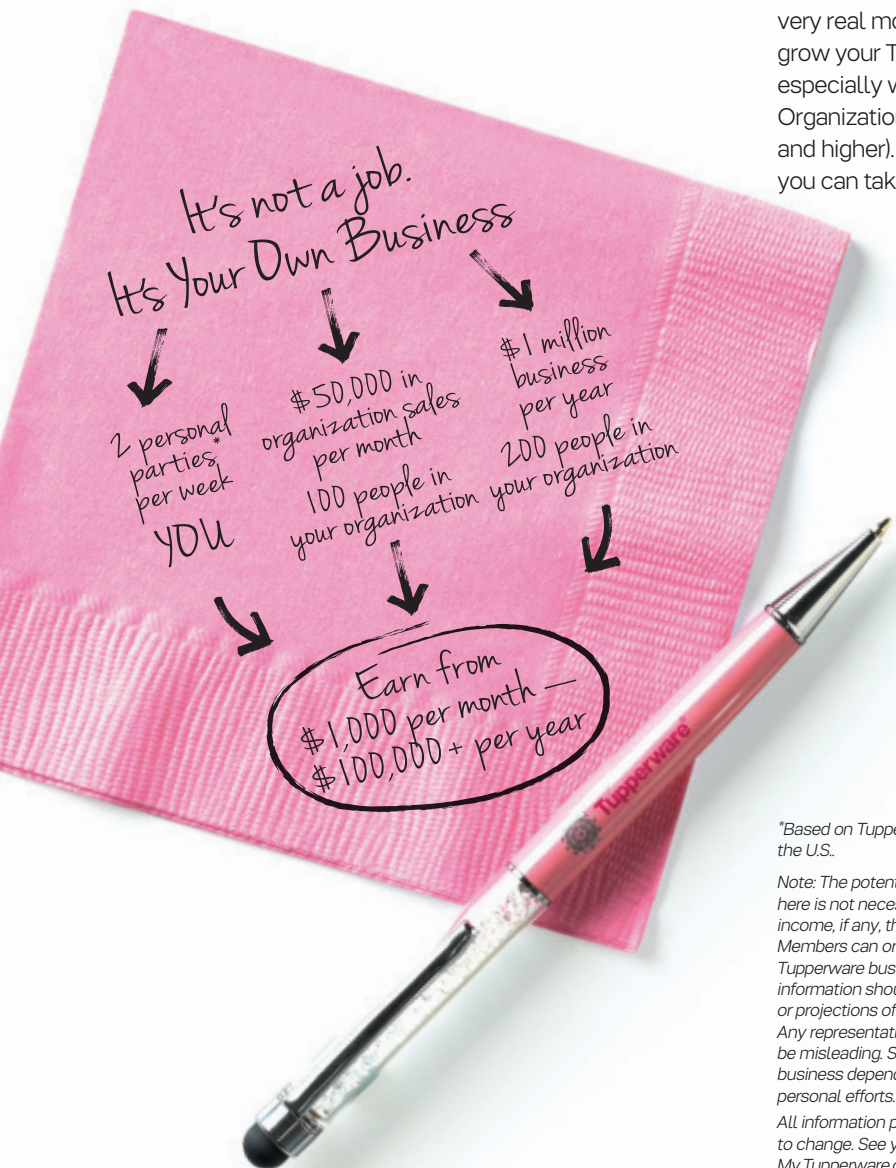 very real mo
grow your T
especially w
Organizatio
and higher).
you can tak
It's not a job.
It's Your Own Business
2 personal
parties*
per week
YOU
$50,000 in
organization sales
per month
100 people in
your organization
$1 million
business
per year
200 people in
your organization
Earn from
$1,000 per month —
$100,000+ per year
Tupperware®
*Based on Tuppe
the U.S..
Note: The potent
here is not neces
income, if any, th
Members can or
Tupperware bus
information shou
or projections of
Any representati
be misleading. S
business depend
personal efforts.
All information p
to change. See y
My Tupperware